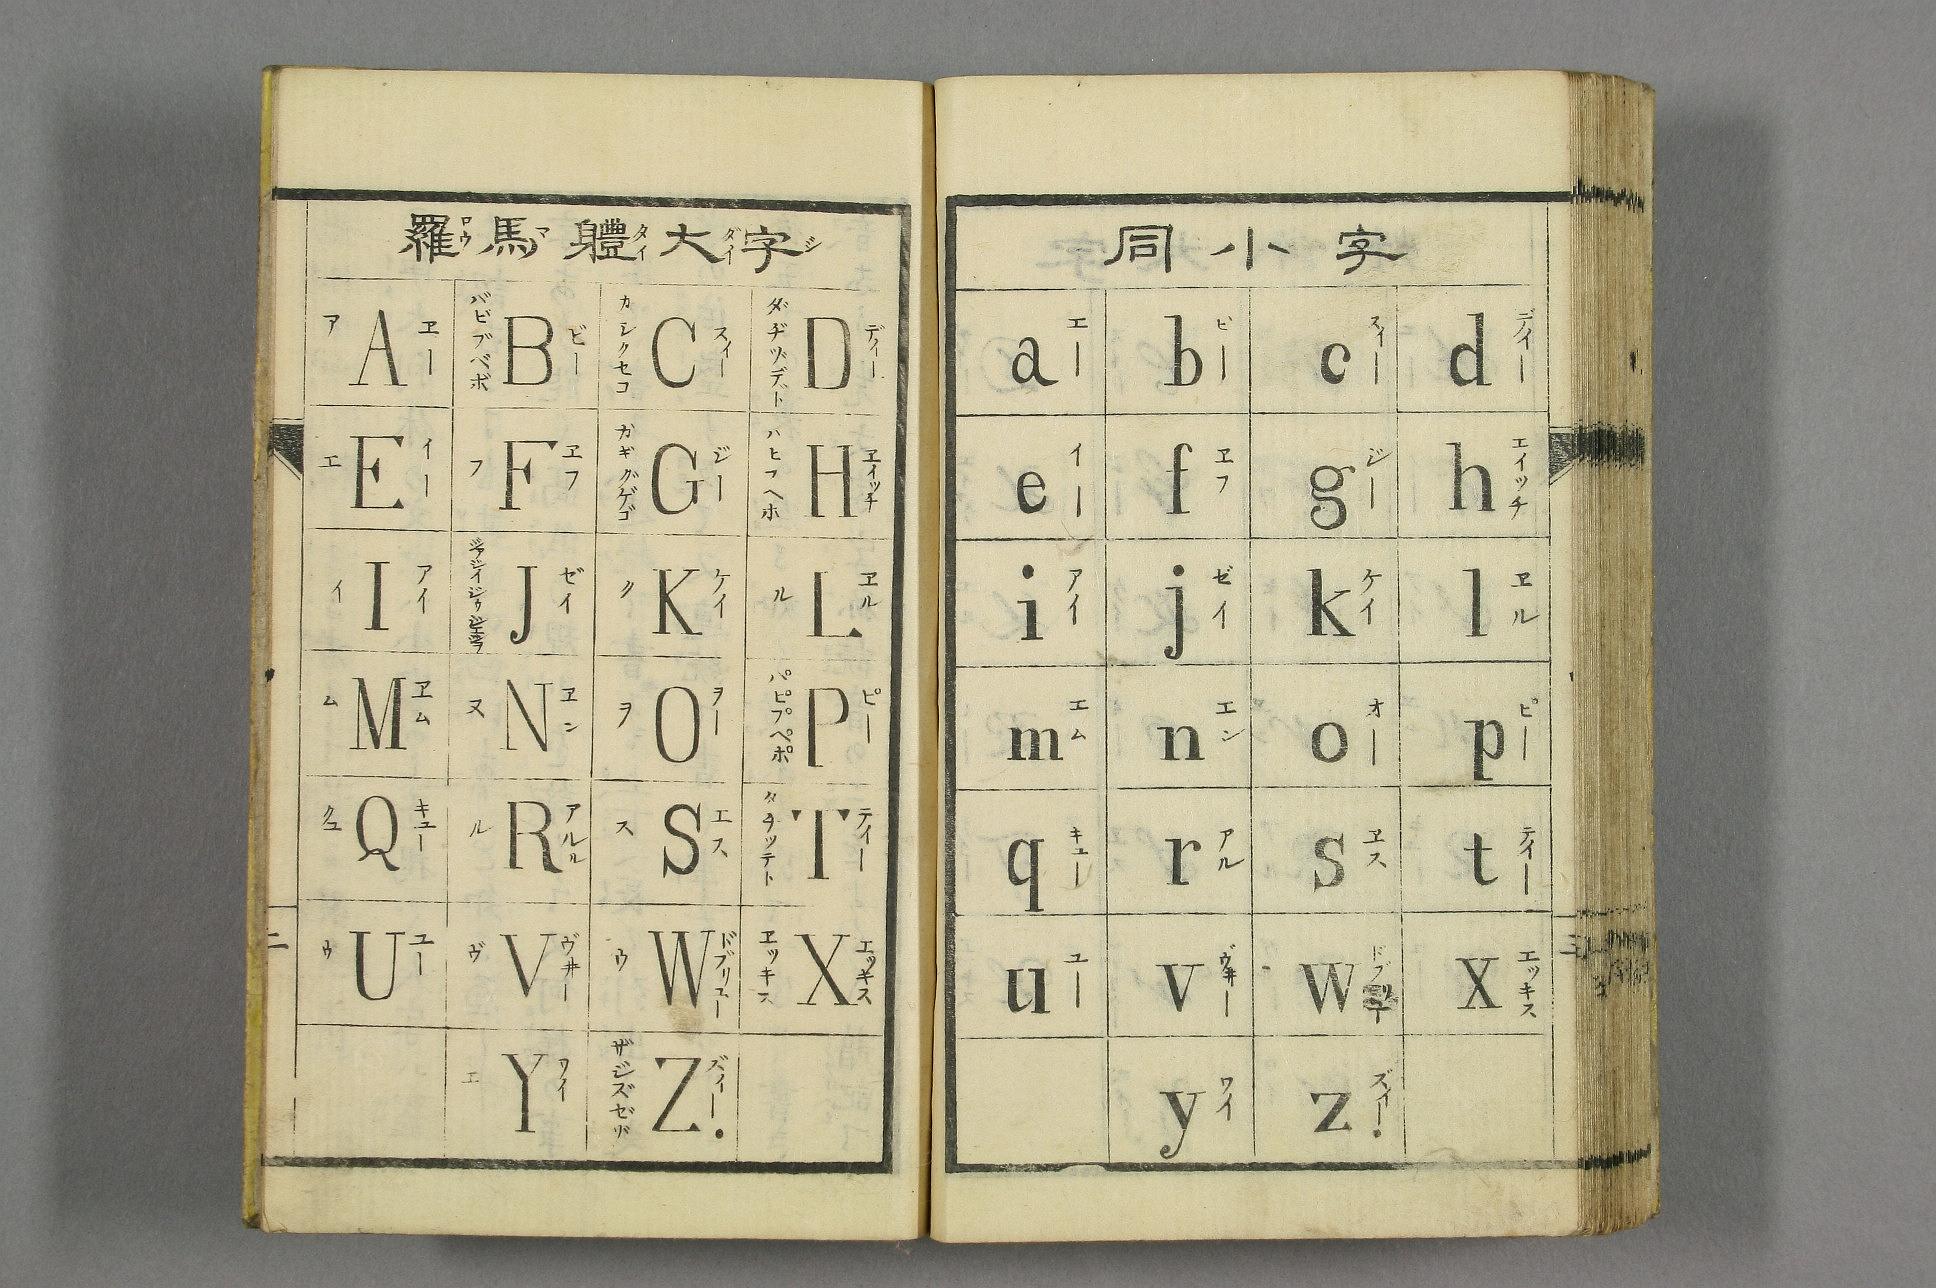 羅馬體大字
ロウ マ タイ ダイ ジ
ア A エー バビブベボ B ビー カシクセコ C スィー ダヂヅデト D ディー
エ E イー フ F ヱフ カギグゲゴ G ジー ハヒフヘホ H ヱイッチ
イ I アイ J ゼイ ク K ケイ ル L ヱル
ム M ヱム ヌ N ヱン ヲ O ヲー パピプペポ P ピー
クユ Q キユー ル R アルル ス S エス T テイー
ウ U ユー ヴ V ヴヰー ウ W ドブリユー ヱッキス X エッキス
エ Y ワイ ザジズゼヅ Z. ズイー
二
同小字
a エー b ビー c スイー d デイー
e イー f ヱフ g ジー h エイッチ
i アイ j ゼイ k ケイ l ヱル
m エム n エン o オー p ピー
q キユー r アル s ヱス t テイー
u ユー v ヴヰー w x エッキス
y ワイ z. ズイー
三